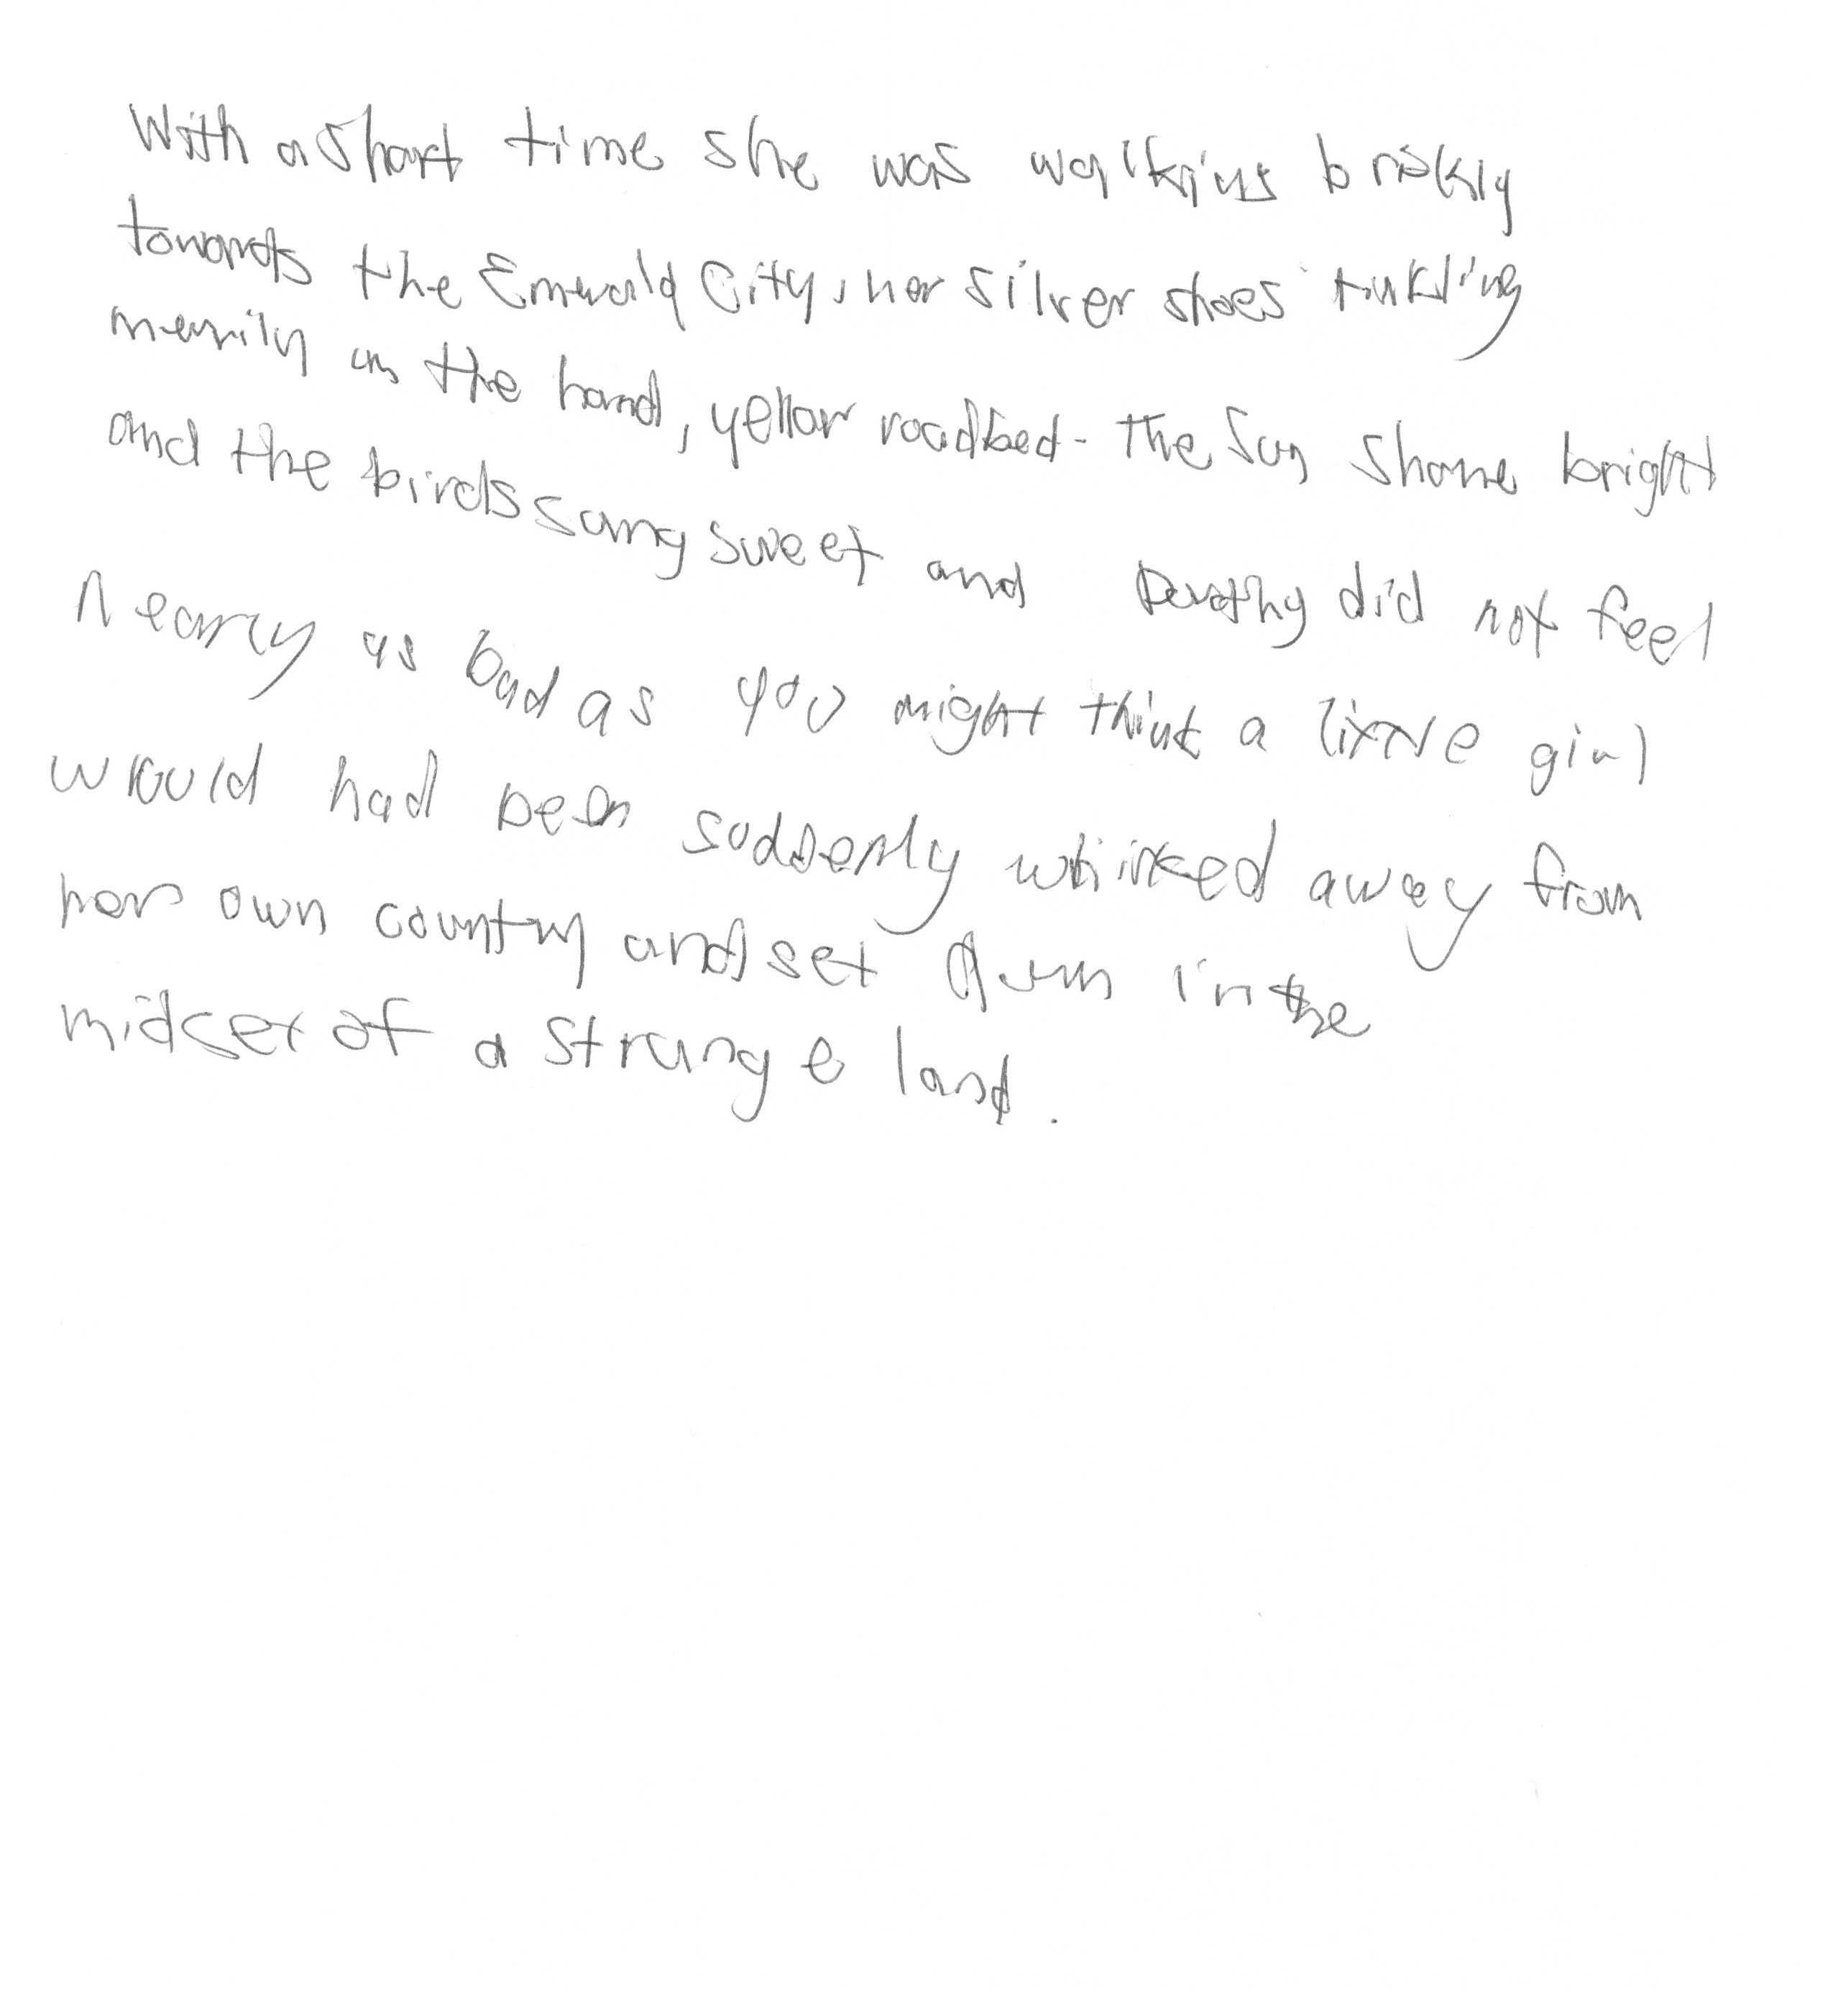 With a short time she was walking briskly
towards the Emerald City, her silver shoes tinkling
merrily on the hard, yellow roadbed. The sun shone bright
and the birds sang sweet and Dorothy did not feel
nearly as bad as you might think a little girl
would had been suddenly whirked away from
her own country and set down in the
midset of a strange land.